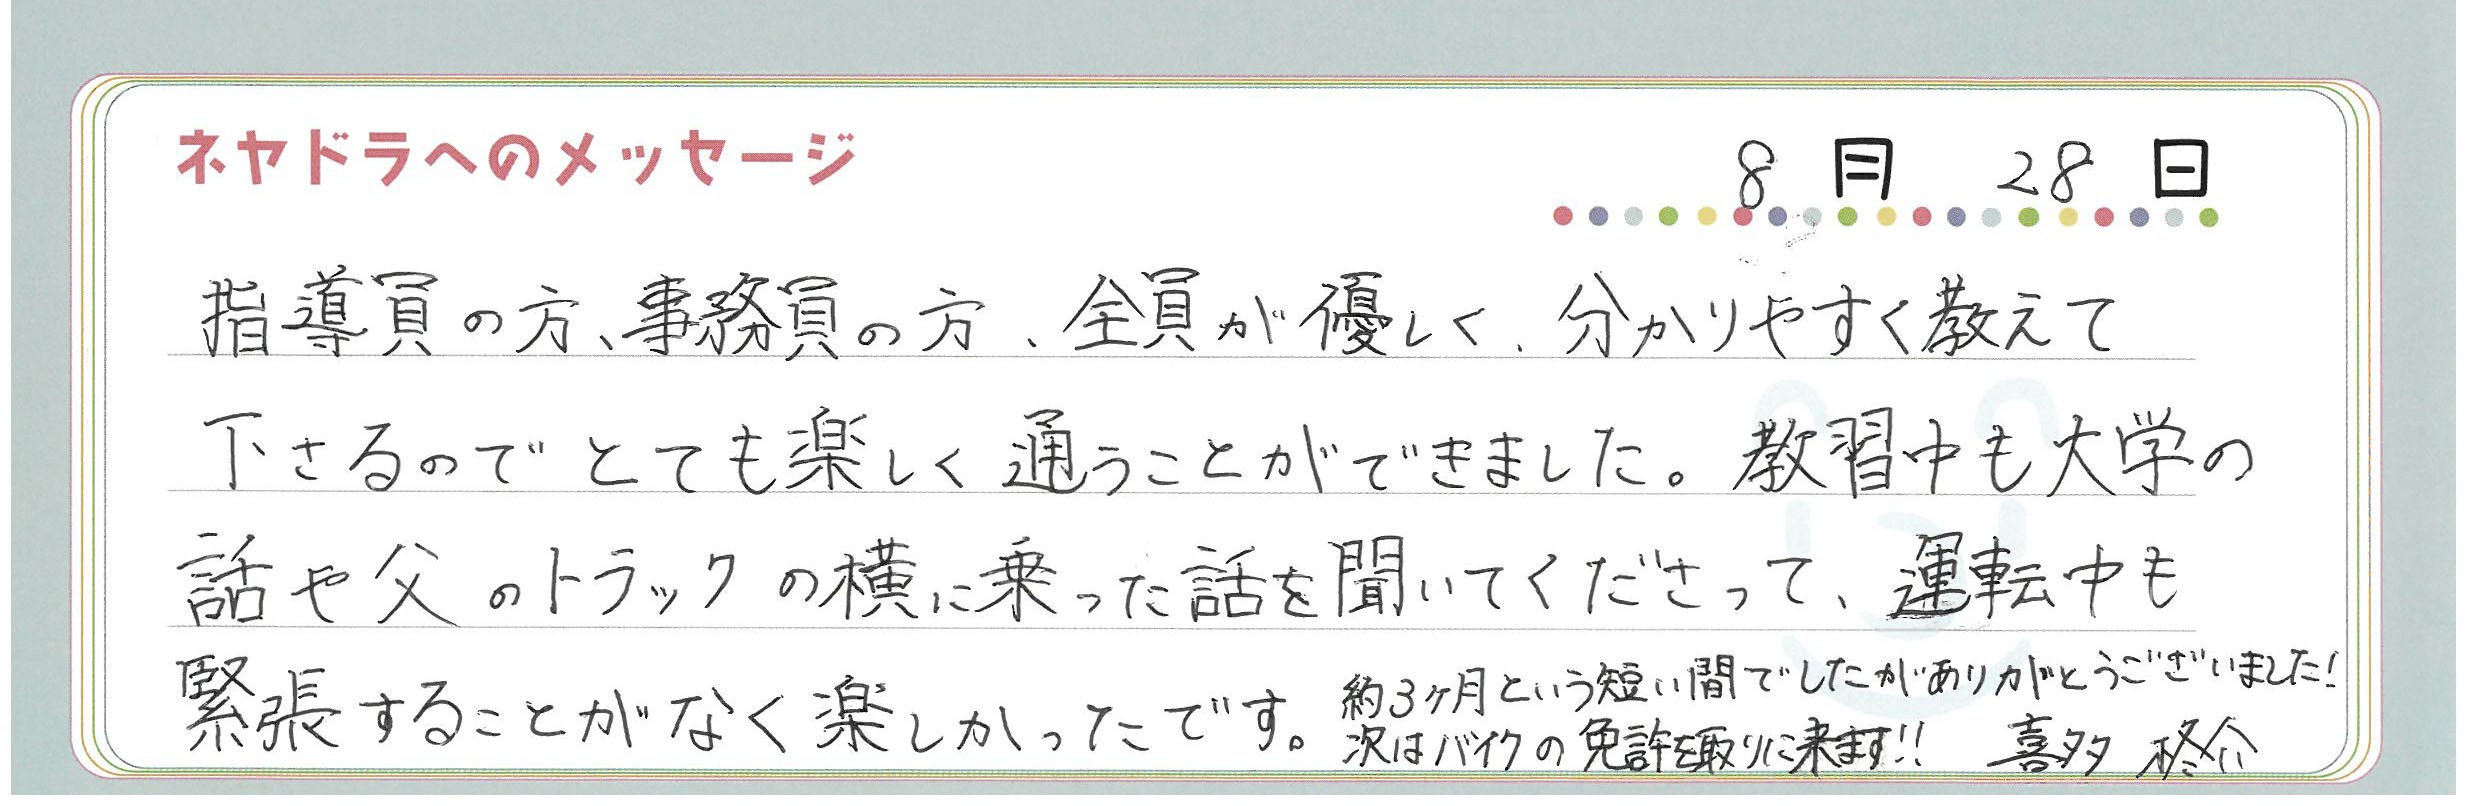 ネヤドラへのメッセージ
8月 28日
指導員の方、事務員の方、全員が優しく、分かりやすく教えて
下さるのでとても楽しく通うことができました。教習中も大学の
話や父のトラックの横に乗った話を聞いてくださって、運転中も
緊張することがなく楽しかったです。
約3ヶ月という短い間でしたがありがとうございました!
次はバイクの免許を取りに来ます!! 喜多 柊介